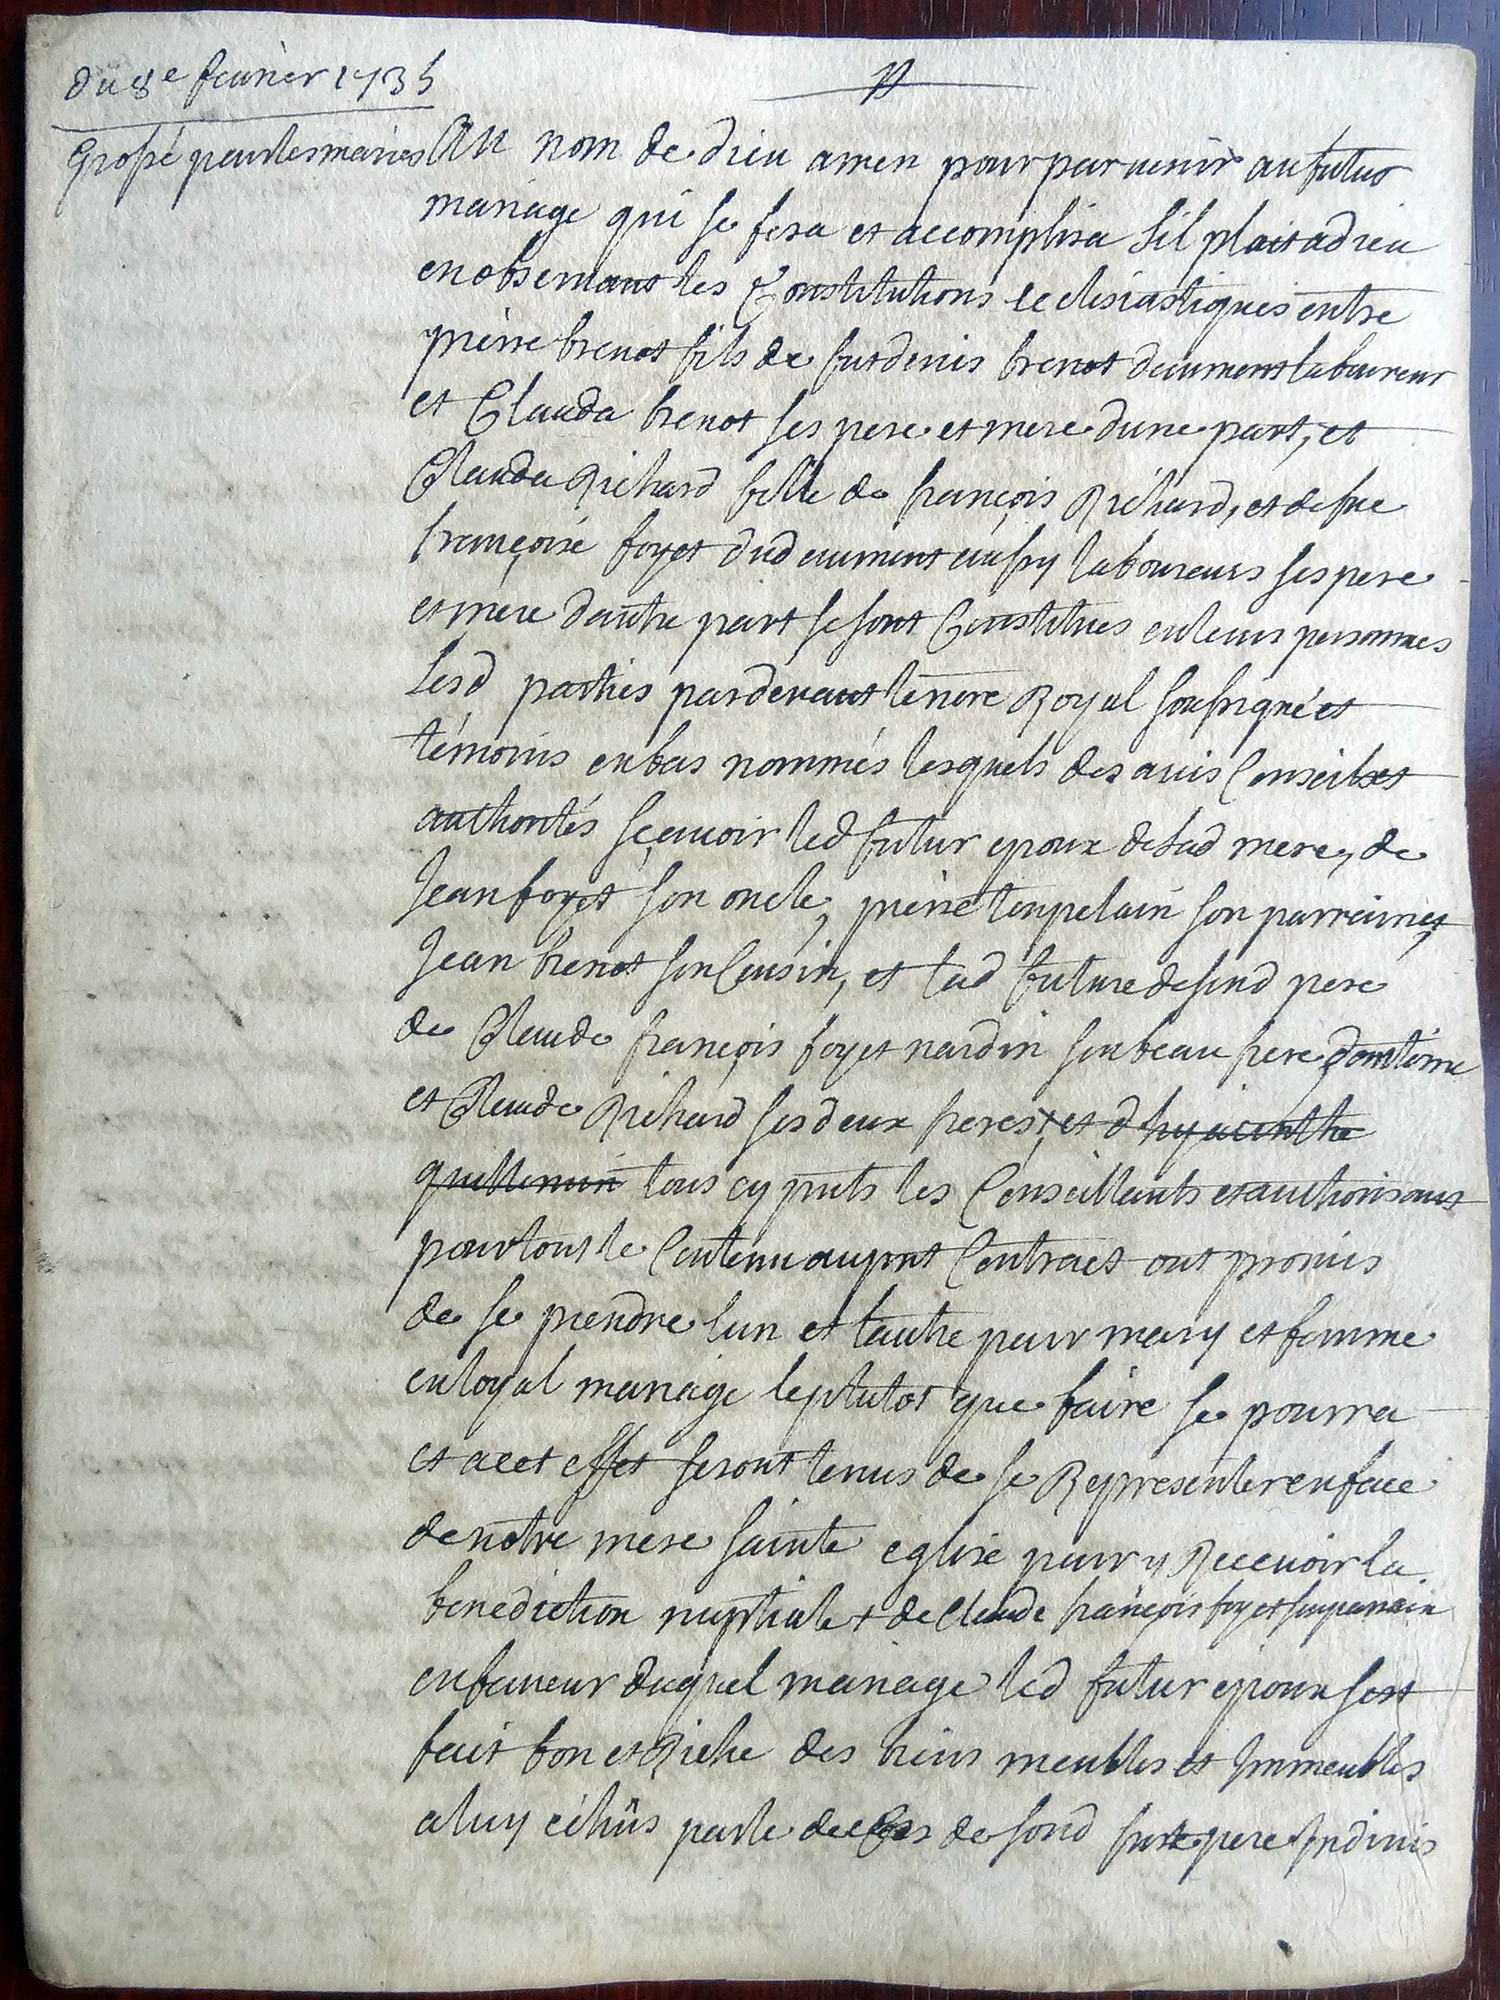 du 8e fevrier 1735
grossé pour les mariés
Au nom de dieu amen pour parvenir au futur
mariage qui se fera et accomplira sil plait a dieu
en observant les Constitutions ecclesiastiques entre
pierre brenot fils de fut denis brenot laboureur
et Clauda brenot ses pere et mere dune part, et
Clauda Richard fille de françois Richard, et de fue
françoise foyet dud aussy laboureurs ses pere
et mere dautre part se sont Constitués en leurs personnes
Lesd parties pardevant le nore Royal soussigné et
témoins en bas nommés lesquels des avis Conseils et
authorités sçavoir led futur epoux de sad mere, de
Jean foyet son oncle, pierre son parrain et
Jean brenot son Cousin, et lad future de sond pere
de Claude françois foyet nardin son beau frere
et Claude Richard ses deux freres + et d hyacinthe
guillemin tous cy pnts les Conseillants et authorisans
pour tout le Contenu au pnt Contract ont promis
de se prendre lun et lautre pour mary et femme
en loyal mariage le plutot que faire se pourra
et a cet effet seront tenus de se Representer en face
de notre mere sainte eglise pour y Recevoir la
benediction nuptiale + de Claude françois foyet son parrain
en faveur duquel mariage led futur epoux sest
fait bon et Riche des biens meubles et Immeubles
a luy échûs par le decés de sond fut pere Indivis